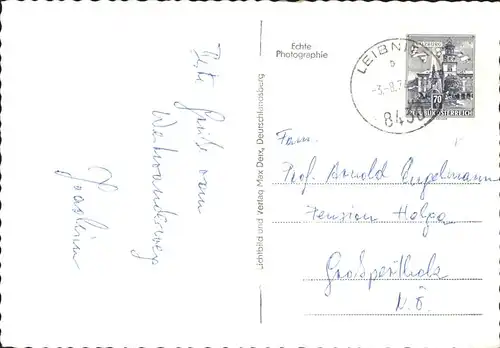 Echte
Photographie
LEIBNITZ
b
-3.-8.7
8430
70
ÖSTERREICH
Lichtbild und Verlag Max Derx, Deutschlandsberg
Grüße vom
Weitwanderweg
Joachim
Fam.
Prof. Arnold Engelmann
Pension Helga
Großpertholz
N.Ö.